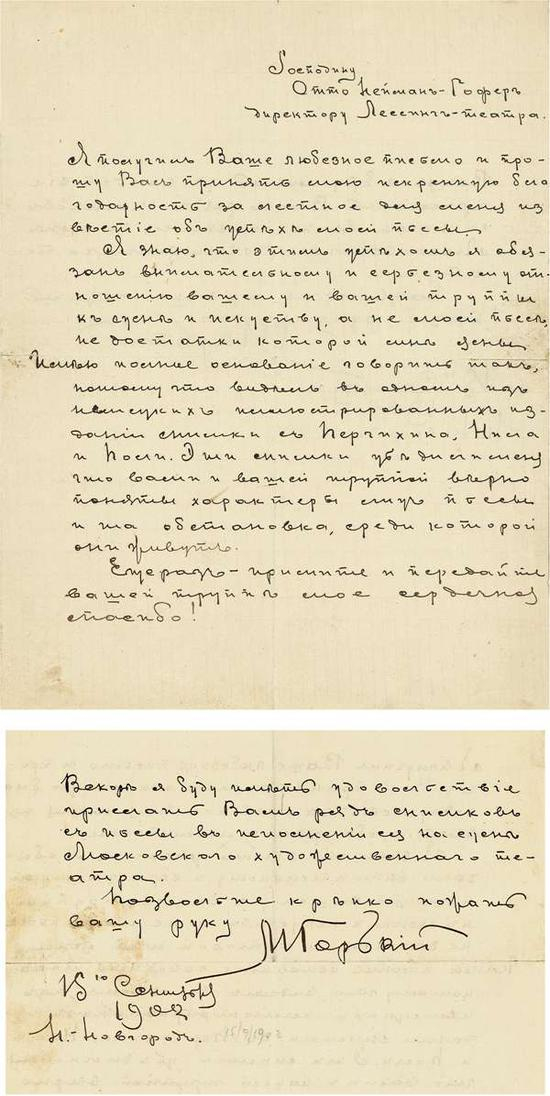 Господину
Отто Нейманъ-Гоферъ
директору Лессингъ-театра.
Я получилъ Ваше любезное письмо и про-
шу Васъ принять мою искреннюю бла
годарность за лестное для меня из
вѣстіе объ успѣхѣ моей пьесы.
Я знаю, что этимъ успѣхомъ я обя-
занъ внимательному и серьезному от-
ношенію вашему и вашей труппы
къ сценѣ и искуству, а не моей пьесѣ,
недостатки которой мнѣ ясны.
Имѣю полное основаніе говорить такъ,
потому что видѣлъ въ одномъ изъ
немецкихъ иллюстрированныхъ из-
даній снимки съ Перчихина, Нила
и Поли. Эти снимки убѣдили меня
что вами и вашей труппой вѣрно
поняты характеры лицъ пьесы
и та обстановка, среди которой
они живутъ.
Еще разъ - примите и передайте
вашей труппѣ мое сердечное
спасибо!
Вскорѣ я буду имѣть удовольствіе
прислать Вамъ рядъ снимковъ
съ пьесы въ исполненіи ея на сценѣ
Московскаго художественнаго те-
атра.
Позвольте крѣпко пожать
вашу руку
МГорькій
15го Сентября
1902
Н.-Новгородъ.